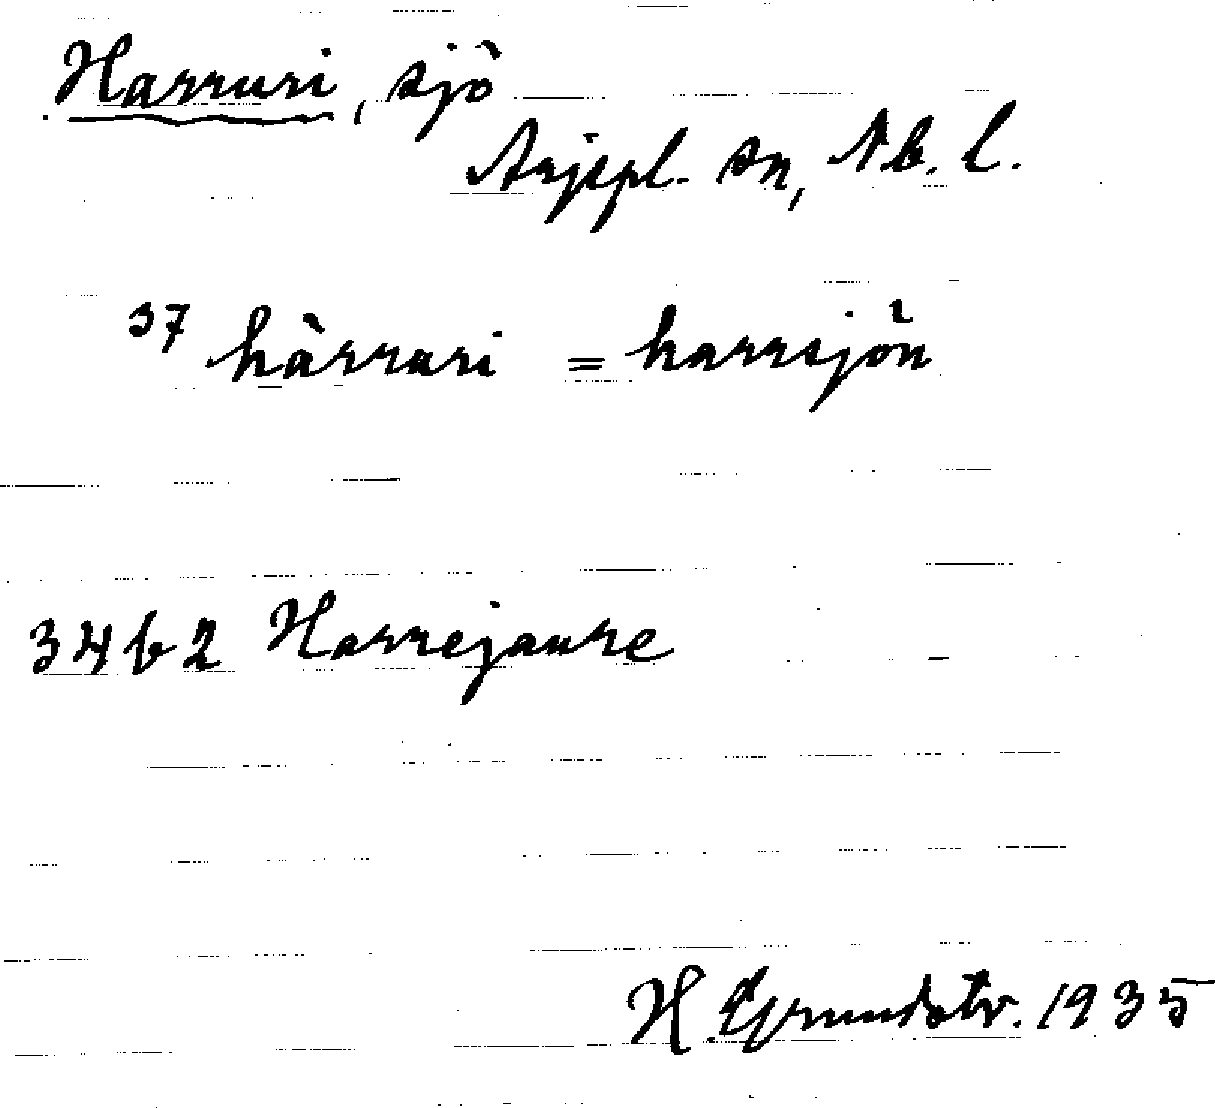 Harruri, sjö
Arjepl. sn, Nb. l.
37 hàrruri = harrsjön
34b2 Harrejaure
H. Grundstr. 1935